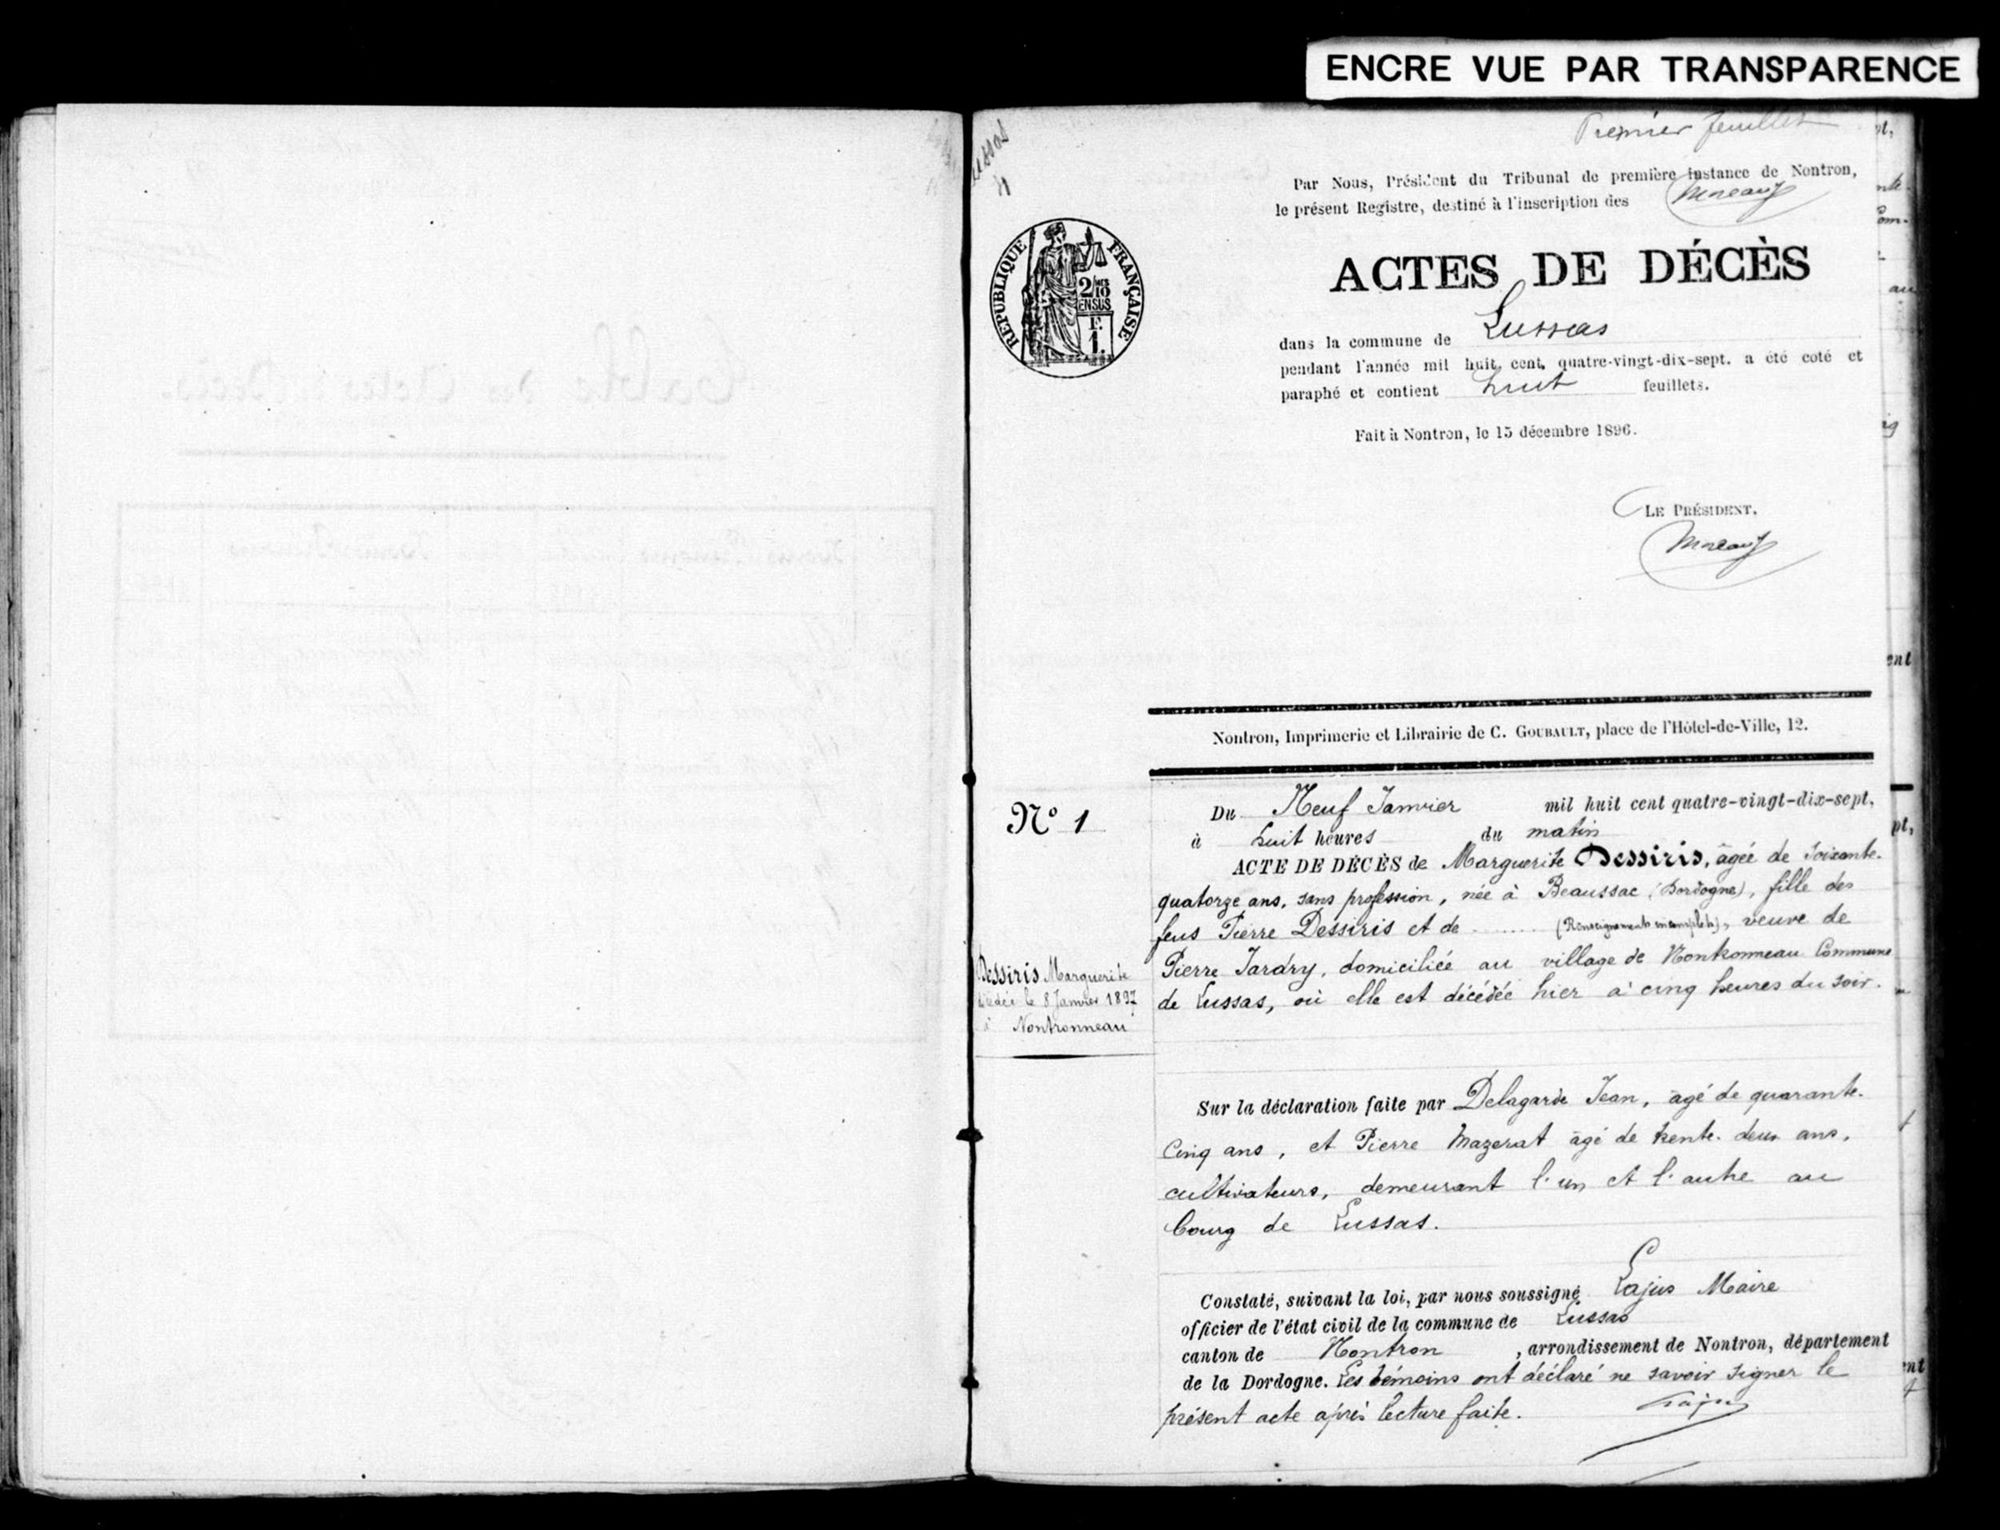 ENCRE VUE PAR TRANSPARENCE
Premier feuillet
Par Nous, Président du Tribunal de première instance de Nontron,
le présent Registre, destiné à l'inscription des
ACTES DE DÉCÈS
RÉPUBLIQUE FRANÇAISE
2/10 MES
EN SUS
F.
1.
dans la commune de Lussas
pendant l'année mil huit cent quatre-vingt-dix-sept. a été coté et
paraphé et contient huit feuillets.
Fait à Nontron, le 15 décembre 1896.
LE PRÉSIDENT,
Nontron, Imprimerie et Librairie de C. GOUBAULT, place de l'Hôtel-de-Ville, 12.
N° 1
Du Neuf Janvier mil huit cent quatre-vingt-dix-sept,
à huit heures du matin
ACTE DE DÉCÈS de Marguerite Dessiris, âgée de soixante-
quatorze ans, sans profession, née à Beaussac (Dordogne), fille des
feus Pierre Dessiris et de ........ (Renseignements incomplets), veuve de
Pierre Jardry, domiciliée au village de Nontronneau Commune
de Lussas, où elle est décédée hier à cinq heures du soir.
Dessiris Marguerite
décédée le 8 Janvier 1897
à Nontronneau
Sur la déclaration faite par Delagarde Jean, âgé de quarante-
cinq ans, et Pierre Mazerat âgé de trente-deux ans,
cultivateurs, demeurant l'un et l'autre au
bourg de Lussas.
Constaté, suivant la loi, par nous soussigné Lajus Maire
officier de l'état civil de la commune de Lussas
canton de Nontron, arrondissement de Nontron, département
de la Dordogne. Les témoins ont déclaré ne savoir signer le
présent acte après lecture faite.
Lajus